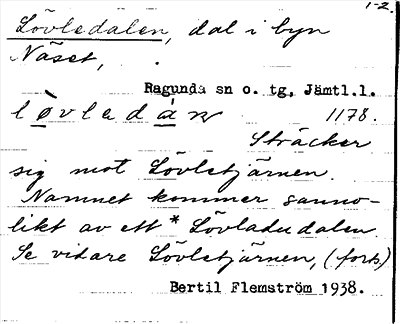 1-2.
Lövledalen, dal i byn
Näset,
Ragunda sn o. tg, Jämtl.l.
løvledàn 1178.
Sträcker
sig mot Lövletjärnen.
Namnet kommer sanno-
likt av ett * Lövladudalen
Se vidare Lövletjärnen, (forts)
Bertil Flemström 1938.